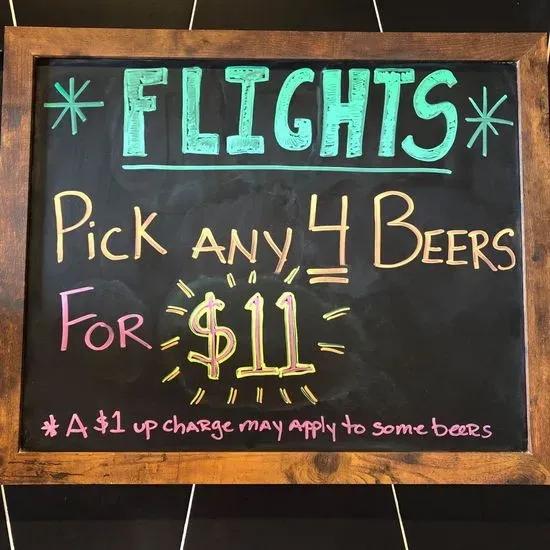 * FLIGHTS *
Pick ANY 4 BEERS
FOR $11
* A $1 up chaRge may Apply to some beeRs